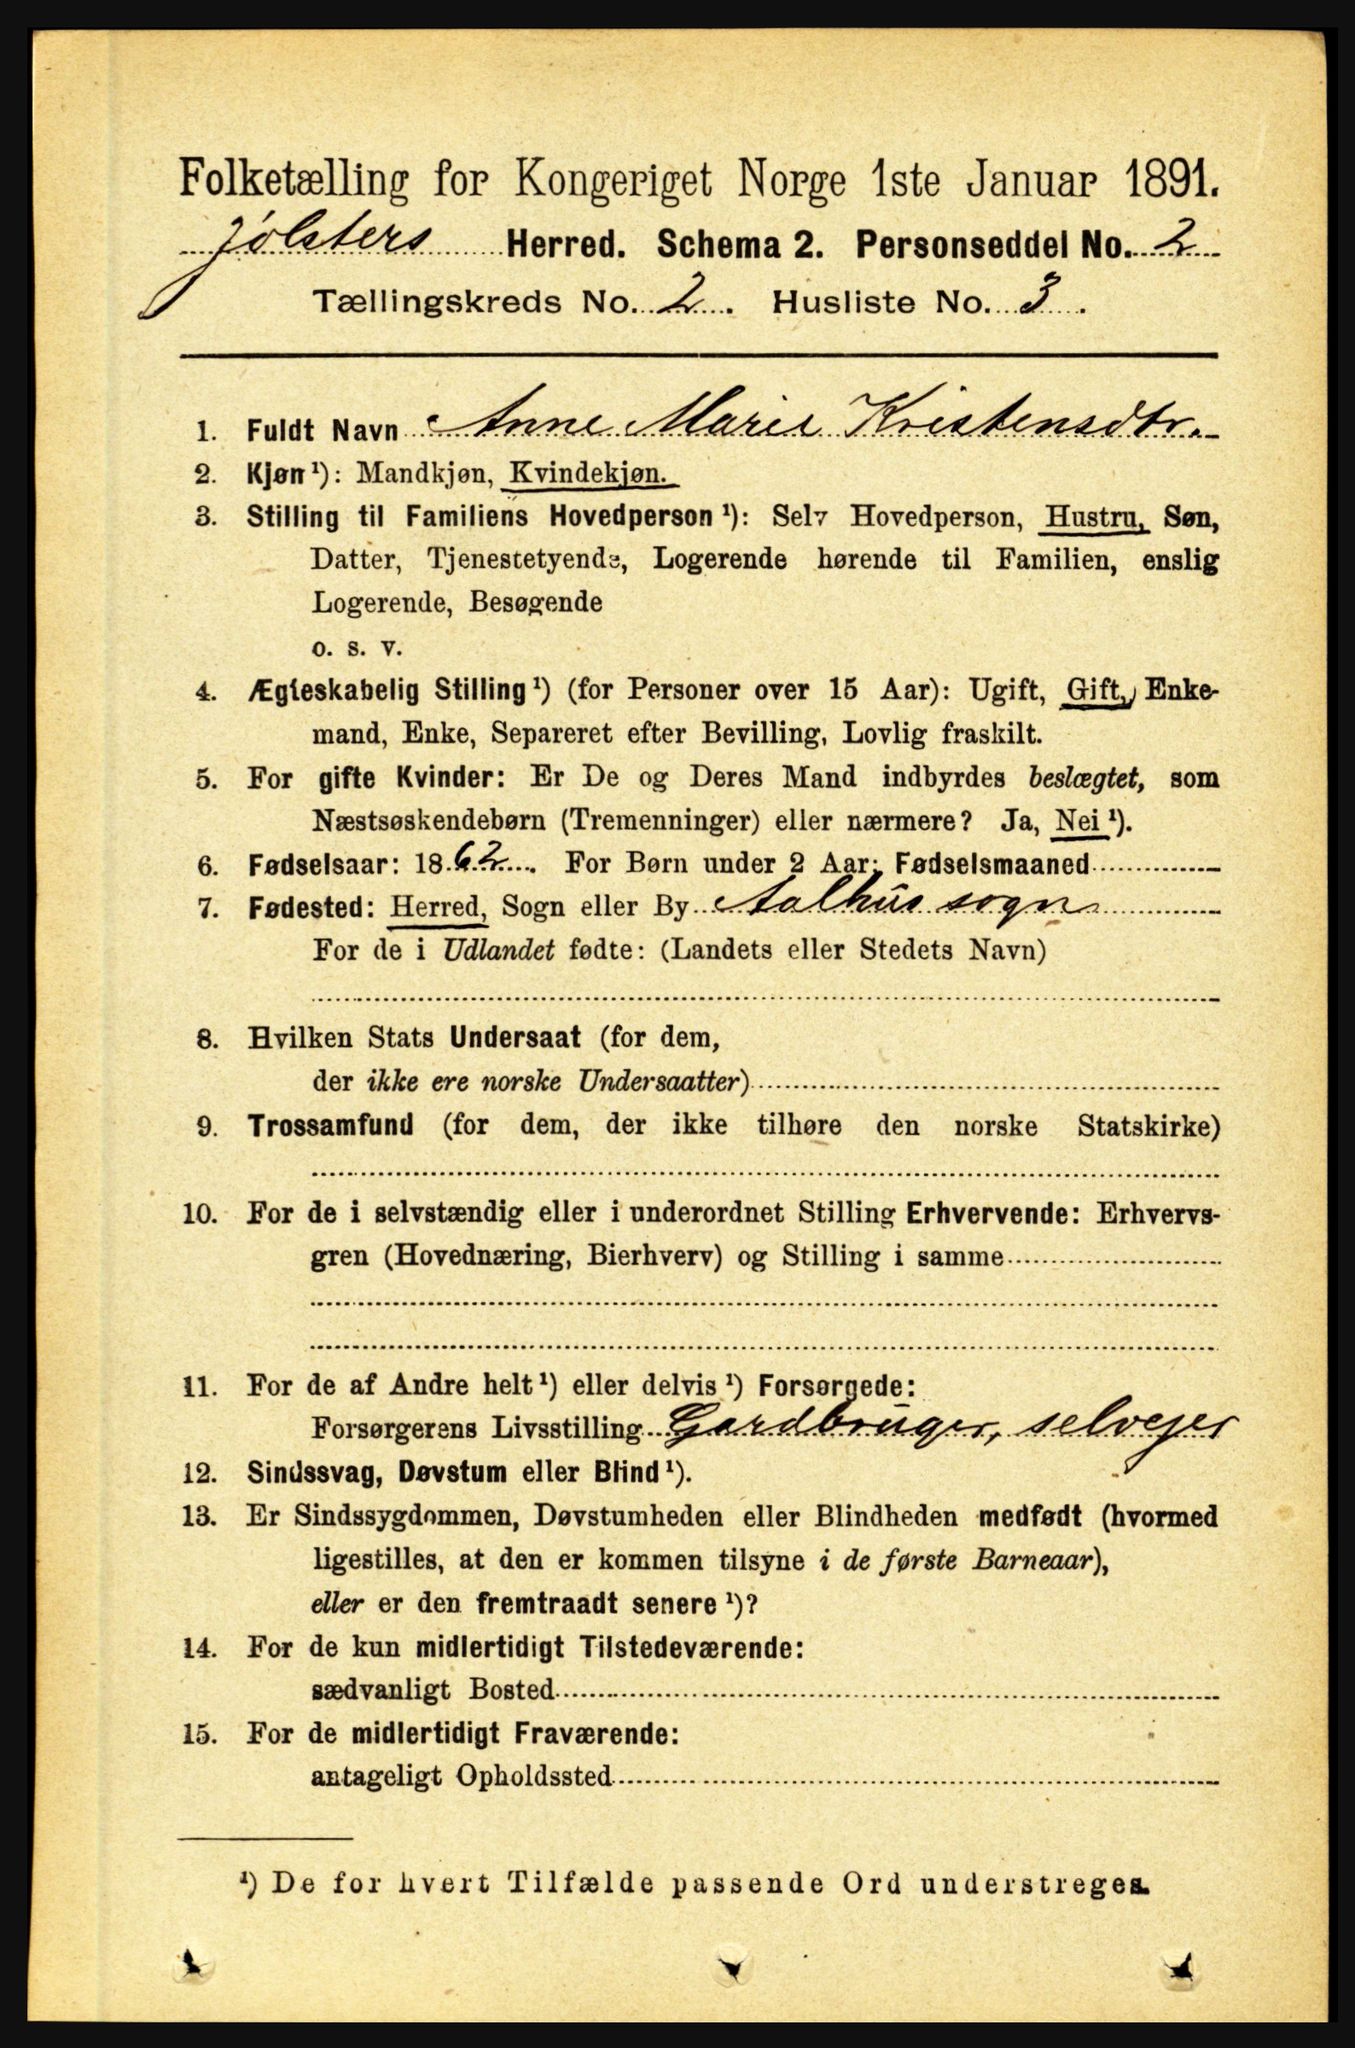 Folketælling for Kongeriget Norge 1ste Januar 1891.
Jølsters Herred. Schema 2. Personseddel No. 2
Tællingskreds No. 2. Husliste No. 3.
1. Fuldt Navn Anne Marie Kristensdtr.
2. Kjøn ¹): Mandkjøn, Kvindekjøn.
3. Stilling til Familiens Hovedperson ¹): Selv Hovedperson, Hustru, Søn,
Datter, Tjenestetyende, Logerende hørende til Familien, enslig
Logerende, Besøgende
o. s. v.
4. Ægteskabelig Stilling ¹) (for Personer over 15 Aar): Ugift, Gift, Enke-
mand, Enke, Separeret efter Bevilling, Lovlig fraskilt.
5. For gifte Kvinder: Er De og Deres Mand indbyrdes beslægtet, som
Næstsøskendebørn (Tremenninger) eller nærmere? Ja, Nei ¹).
6. Fødselsaar: 1862. For Børn under 2 Aar: Fødselsmaaned
7. Fødested: Herred, Sogn eller By Aalhus sogn
For de i Udlandet fødte: (Landets eller Stedets Navn)
8. Hvilken Stats Undersaat (for dem,
der ikke ere norske Undersaatter)
9. Trossamfund (for dem, der ikke tilhøre den norske Statskirke)
10. For de i selvstændig eller i underordnet Stilling Erhvervende: Erhvervs-
gren (Hovednæring, Bierhverv) og Stilling i samme
11. For de af Andre helt ¹) eller delvis ¹) Forsørgede:
Forsørgerens Livsstilling Gardbruger, selvejer
12. Sindssvag, Døvstum eller Blind ¹).
13. Er Sindssygdommen, Døvstumheden eller Blindheden medfødt (hvormed
ligestilles, at den er kommen tilsyne i de første Barneaar),
eller er den fremtraadt senere ¹)?
14. For de kun midlertidigt Tilstedeværende:
sædvanligt Bosted
15. For de midlertidigt Fraværende:
antageligt Opholdssted
¹) De for hvert Tilfælde passende Ord understreges.